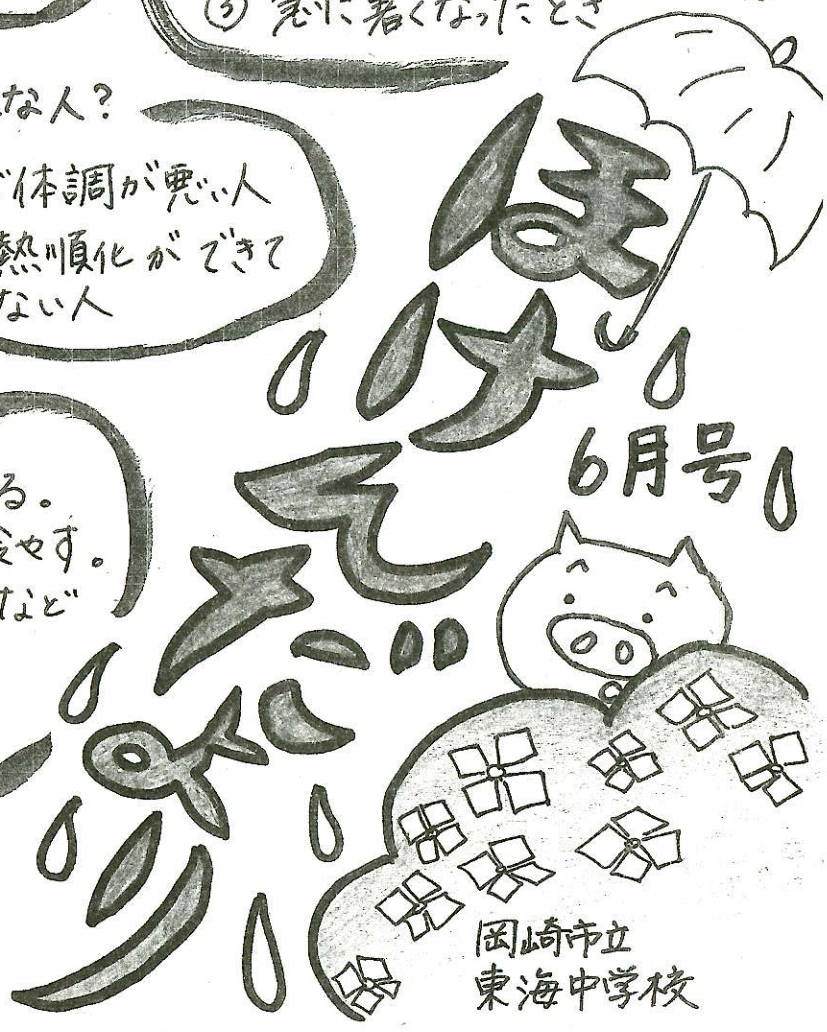 ③ 急に暑くなったとき
な人?
体調が悪い人
熱順化ができて
ない人
る。
やす。
など
ほけ
だ
より
6月号
岡崎市立
東海中学校